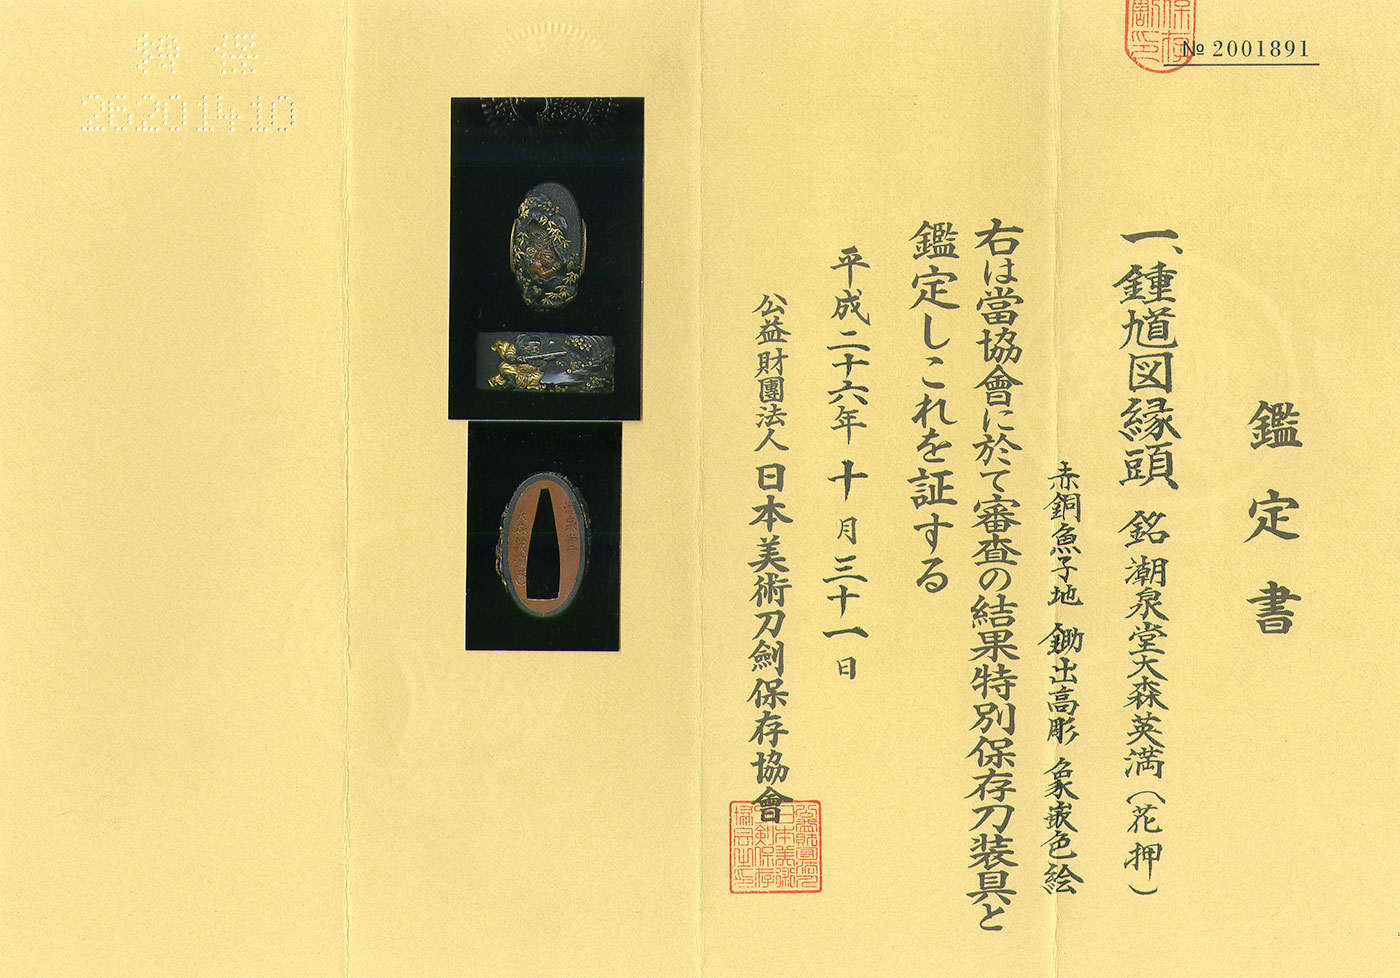 № 2001891
鑑定書
一、鍾馗図縁頭 銘 潮泉堂大森英満（花押）
赤銅魚子地 鋤出高彫 象嵌色絵
右は當協會に於て審査の結果特別保存刀装具と
鑑定しこれを証する
平成二十六年十月三十一日
公益財團法人 日本美術刀劍保存協會
26201410